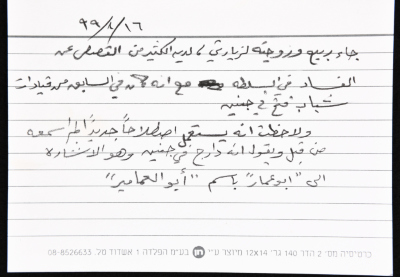 ٩٩/٨/١٦
جاء ربيع وزوجته لزيارتي، لديه الكثير من القصص عن
الفساد في السلطه مع انه كان في السابق من قيادات
شباب فتح في جنين
ولاحظت انه يستعمل اصطلاحاً جديداً لم اسمعه
من قبل ويقول انه دارج في جنين وهو الاشارة
الى "ابوعمار" باسم "أبو العمامير"
כרטיסיה מס' 2 הדר 140 גר' 12X14 מיוצר ע"י בע"מ הפלדה 1 אשדוד טל. 08-8526633